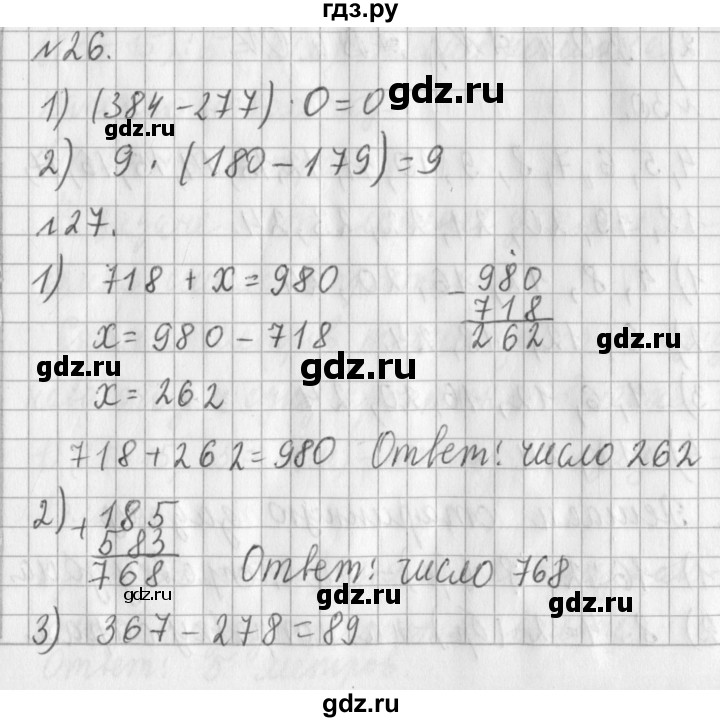 гдз.ру
№26.
1) (384 - 277) · 0 = 0
gdz.ru
gdz.ru
2) 9 · (180 - 179) = 9
№27.
1) 718 + x = 980
- 980
718
262
gdz.ru
x = 980 - 718
gdz.ru
gdz.ru
gdz.ru
x = 262
718 + 262 = 980 Ответ: число 262
2) + 185
583
768
Ответ: число 768
gdz.ru
gdz.ru
3) 367 - 278 = 89
gdz.ru